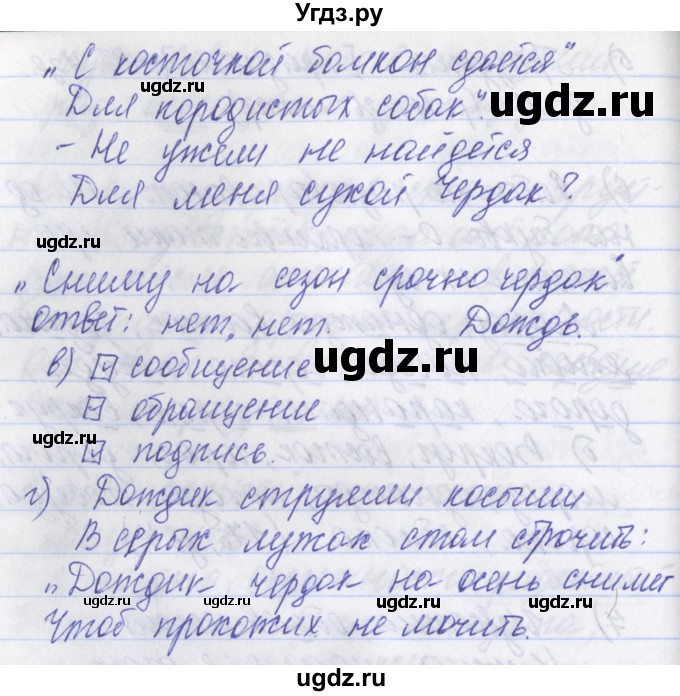 Угдз.ру
„С косточкой балкон сдаётся"
Для породистых собак".
- Не ужели не найдется
Для меня сухой чердак?
ugdz.ru
ugdz.ru
ugdz.ru
ugdz.ru
„Сниму на сезон срочно чердак"
ответ: нет, нет. Дождь.
ugdz.ru
ugdz.ru
в) сообщение
обращение
подпись.
ugdz.ru
ugdz.ru
г) Дождик струями косыми
В серых лужах стал строчить:
„Дождик чердак на осень снимет
Чтоб прохожих не мочить.
ugdz.ru
ugdz.ru
ugdz.ru
ugdz.ru
ugdz.ru